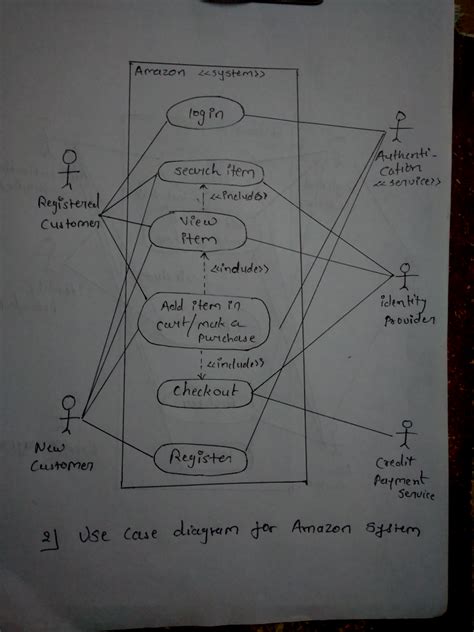 Amazon <<system>>
login
Authenti-
cation
<<service>>
search item
<<include>>
Registered
Customer
View
item
<<include>>
identity
Provider
Add item in
cart/mak a
purchase
<<include>>
checkout
New
Customer
Register
Credit
Payment
Service
2] Use case diagram for Amazon System